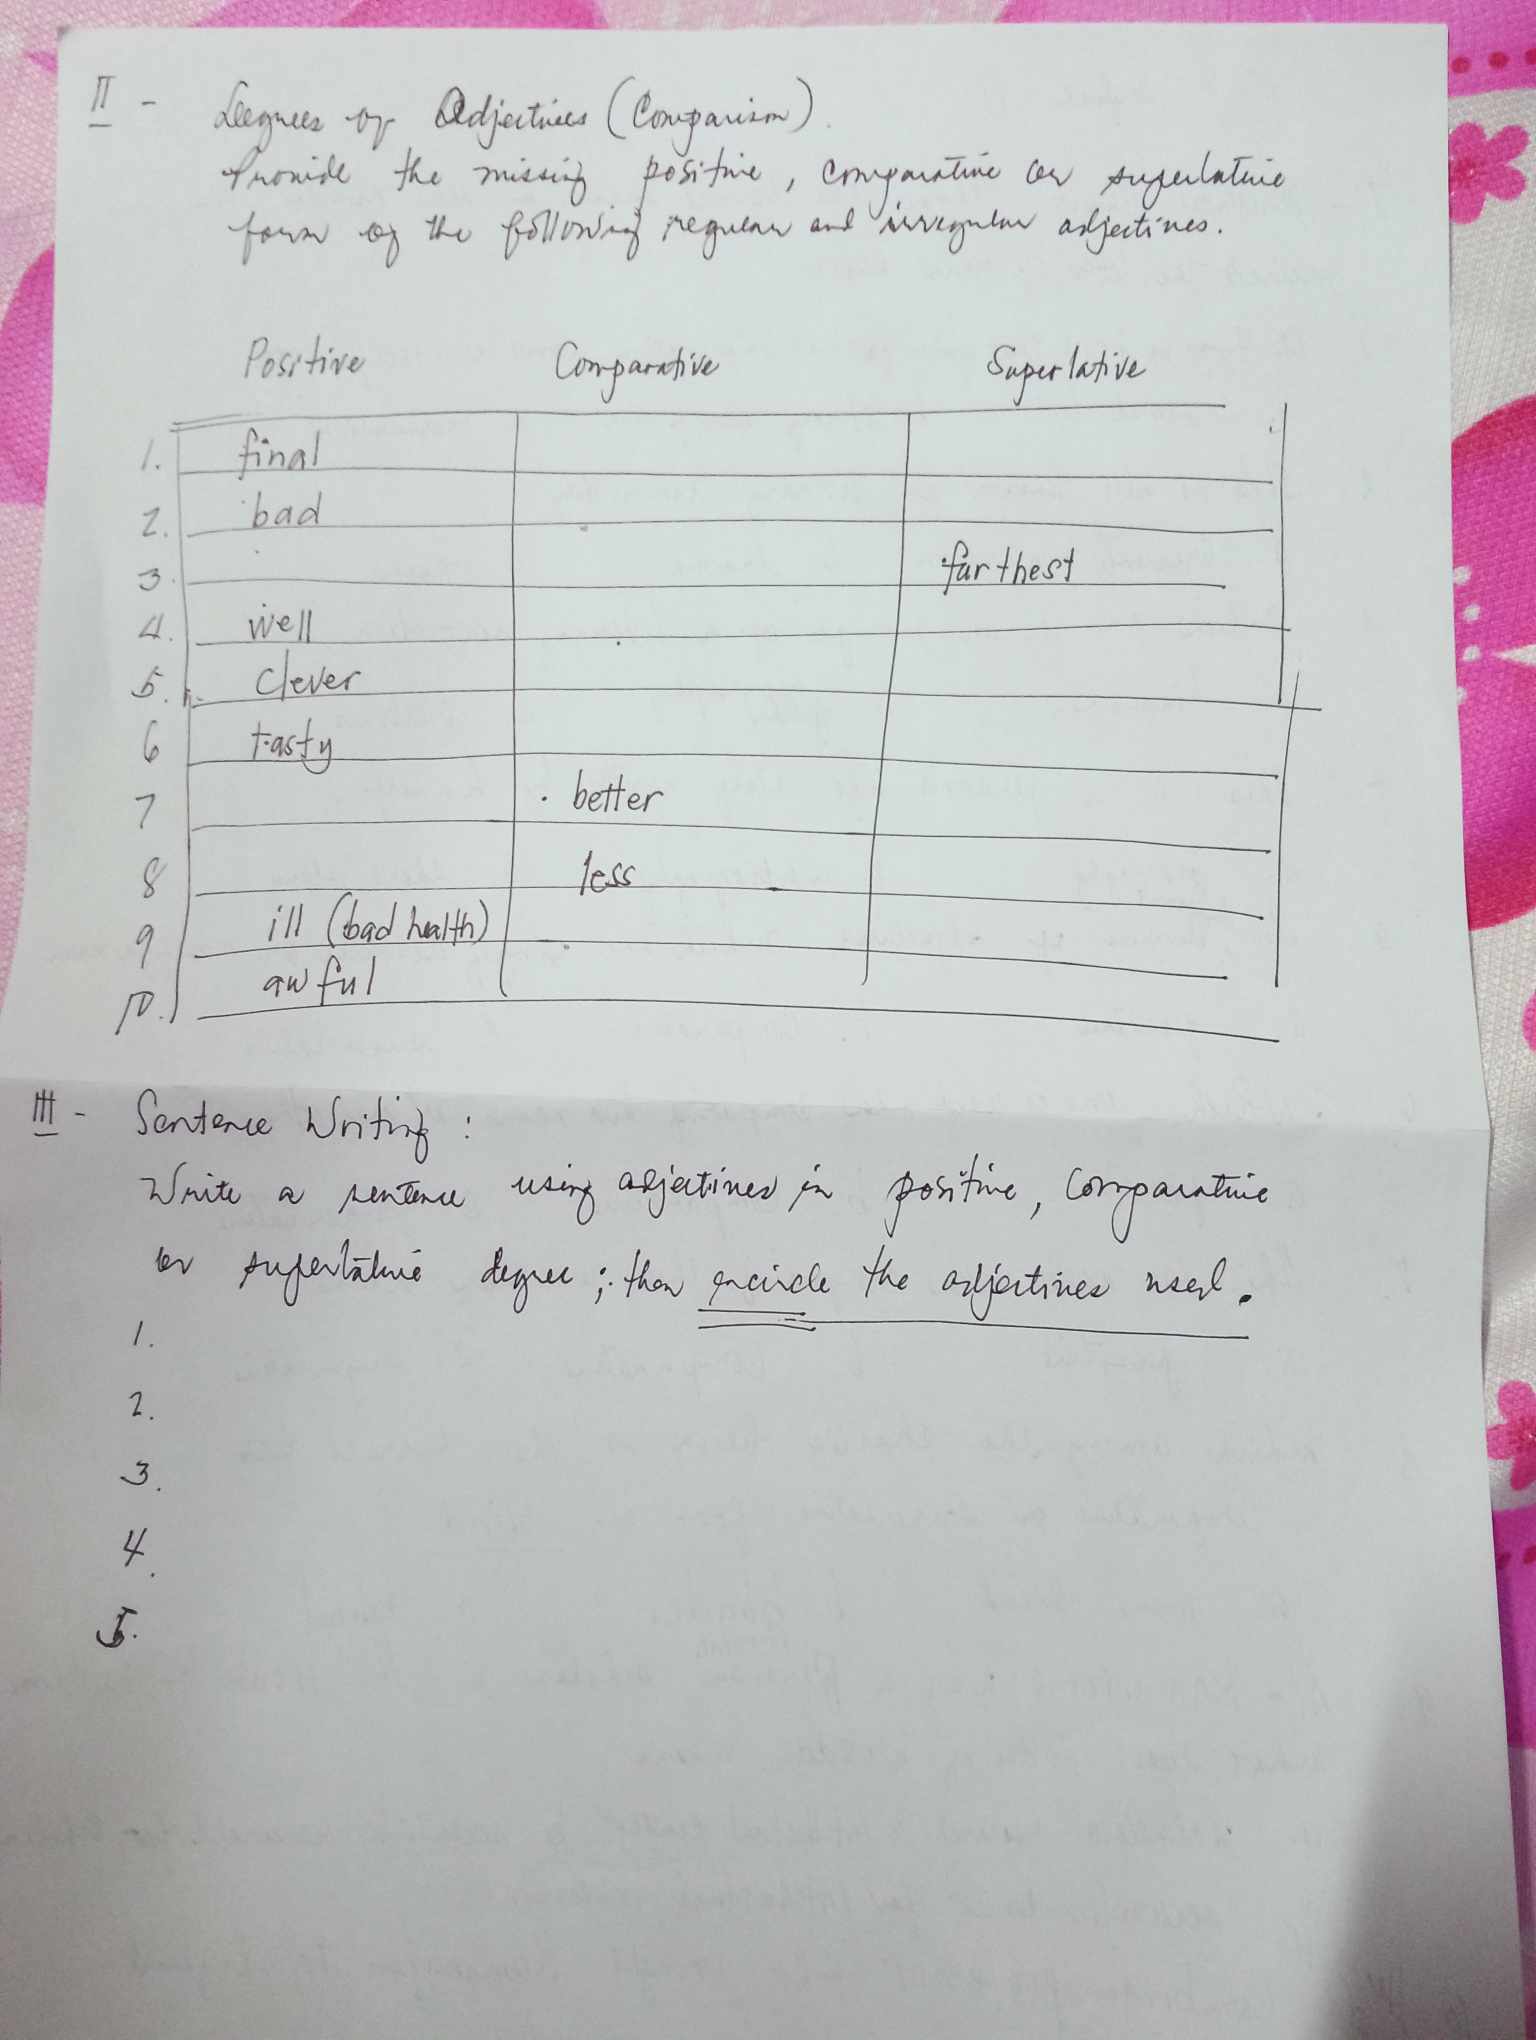 II - Degrees of Adjectives (Comparison)
Provide the missing positive, comparative or superlative
form of the following regular and irregular adjectives.
Positive Comparative Superlative
1. final
2. bad
3. farthest
4. well
5. clever
6 tasty
7 better
8 less
9 ill (bad health)
10. awful
III - Sentence Writing :
Write a sentence using adjectives in positive, comparative
or superlative degree ; then encircle the adjectives used.
1.
2.
3.
4.
5.